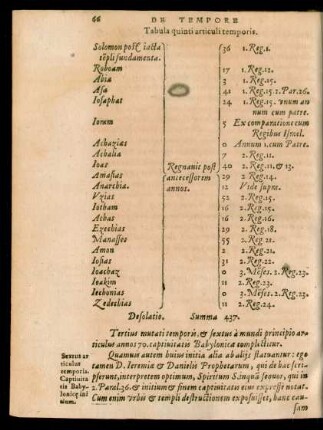 66 DE TEMPORE
Tabula quinti articuli temporis.
Solomon post iacta 36 1. Reg. 1.
tēpli fundamenta.
Roboam 17 1. Reg. 12.
Abia 3 1. Reg. 15.
Asa 41 1. Reg. 15. 2. Par. 26.
Iosaphat 24 1. Reg. 15. vnum an
num cum patre.
Ioram 5 Ex comparatione cum
Regibus
Achazias 0 Annum 1. cum Patre.
Athalia 7 2. Reg. 11.
Ioas Regnauit post 40 2. Reg. 11. & 13.
Amasias antecessorem 29 2. Reg. 14.
Anarchia. annos. 12 Vide supra.
Vzias 52 2. Reg. 15.
Iotham 16 2. Reg. 15.
Achas 16 2. Reg. 16.
Ezechias 29 2. Reg. 18.
Manasses 55 2. Reg. 21.
Amon 2 2. Reg. 21.
Iosias 31 2. Reg. 22.
Ioachaz 0 3. Meses. 2. Reg. 23.
Ioakim 11 2. Reg. 23.
Iechonias 0 3. Meses. 2. Reg. 23.
Zedechias 11 2. Reg. 24.
Desolatio. Summa 437.
Tertius mutati temporis, & sextus à mundi principio ar-
ticulus annos 70. captiuitatis Babylonica complectitur.
Quamuis autem huius initia alia ab alijs statuantur: ego
tamen D. Ieremia & Danielis Prophetarum, qui de hac scri-
pserunt, interpretem optimum, Spiritum S. sequos, qui in
2. Paral. 36. & initium & finem captiuitatis eius expresse notat.
Cum enim vrbis & templi destructionem exposuisset, hanc cau-
sam
SEXTUS ar
ticulus
temporis.
Captiuita
tis Baby-
lonicæ ini
tium.